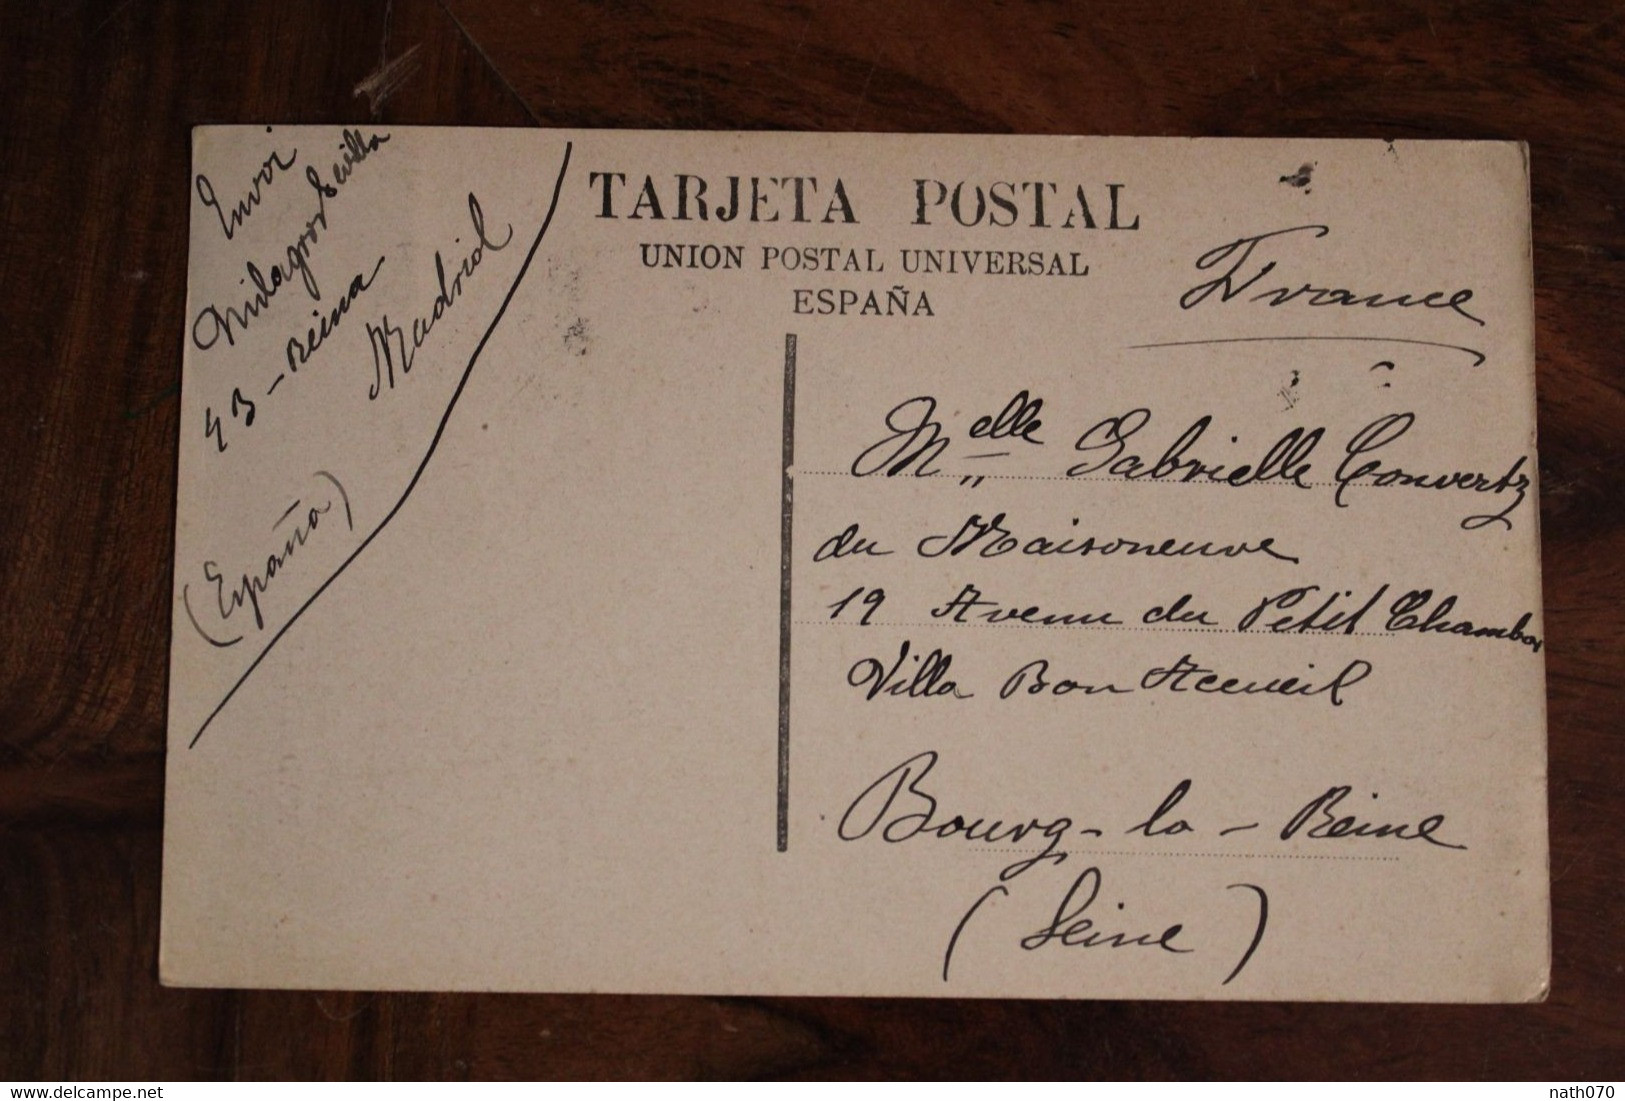 Envoi
Milagros Sevilla
43 - Reina
Madrid
(España)
TARJETA POSTAL
UNION POSTAL UNIVERSAL
ESPAÑA
France
Melle Gabrielle Convertz
du Maisoneuve
19 Avenu du Petit Chambor
Villa Bon Accueil
Bourg - la - Reine
(Seine)
delcampe.net
nath070